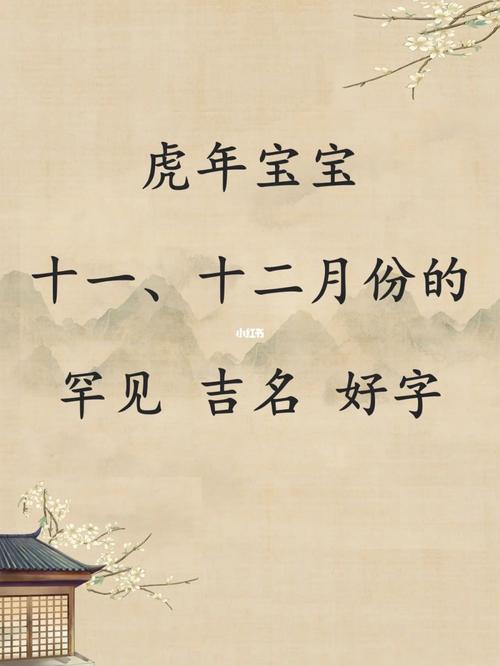 虎年宝宝
十一、十二月份的
小红书
罕见 吉名 好字